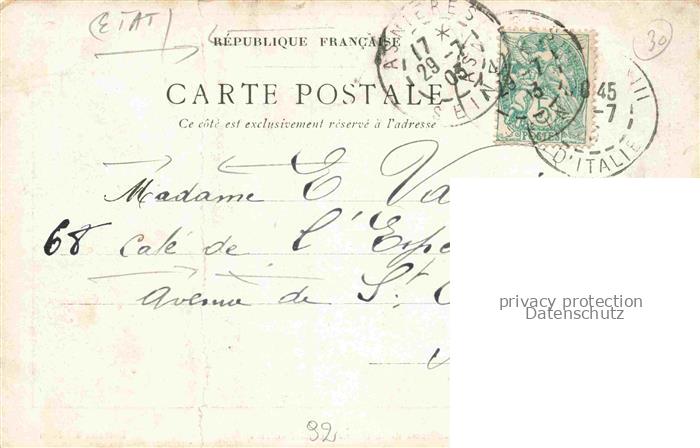 (ETAT)
30
RÉPUBLIQUE FRANÇAISE
ASNIÈRES
17
29 -7
03
SEINE
CARTE POSTALE
Ce côté est exclusivement réservé à l'adresse
POSTES
45
-7
D'ITALIE
Madame E Va
68 Café de l'Espé
Avenue de St.
privacy protection
Datenschutz
92